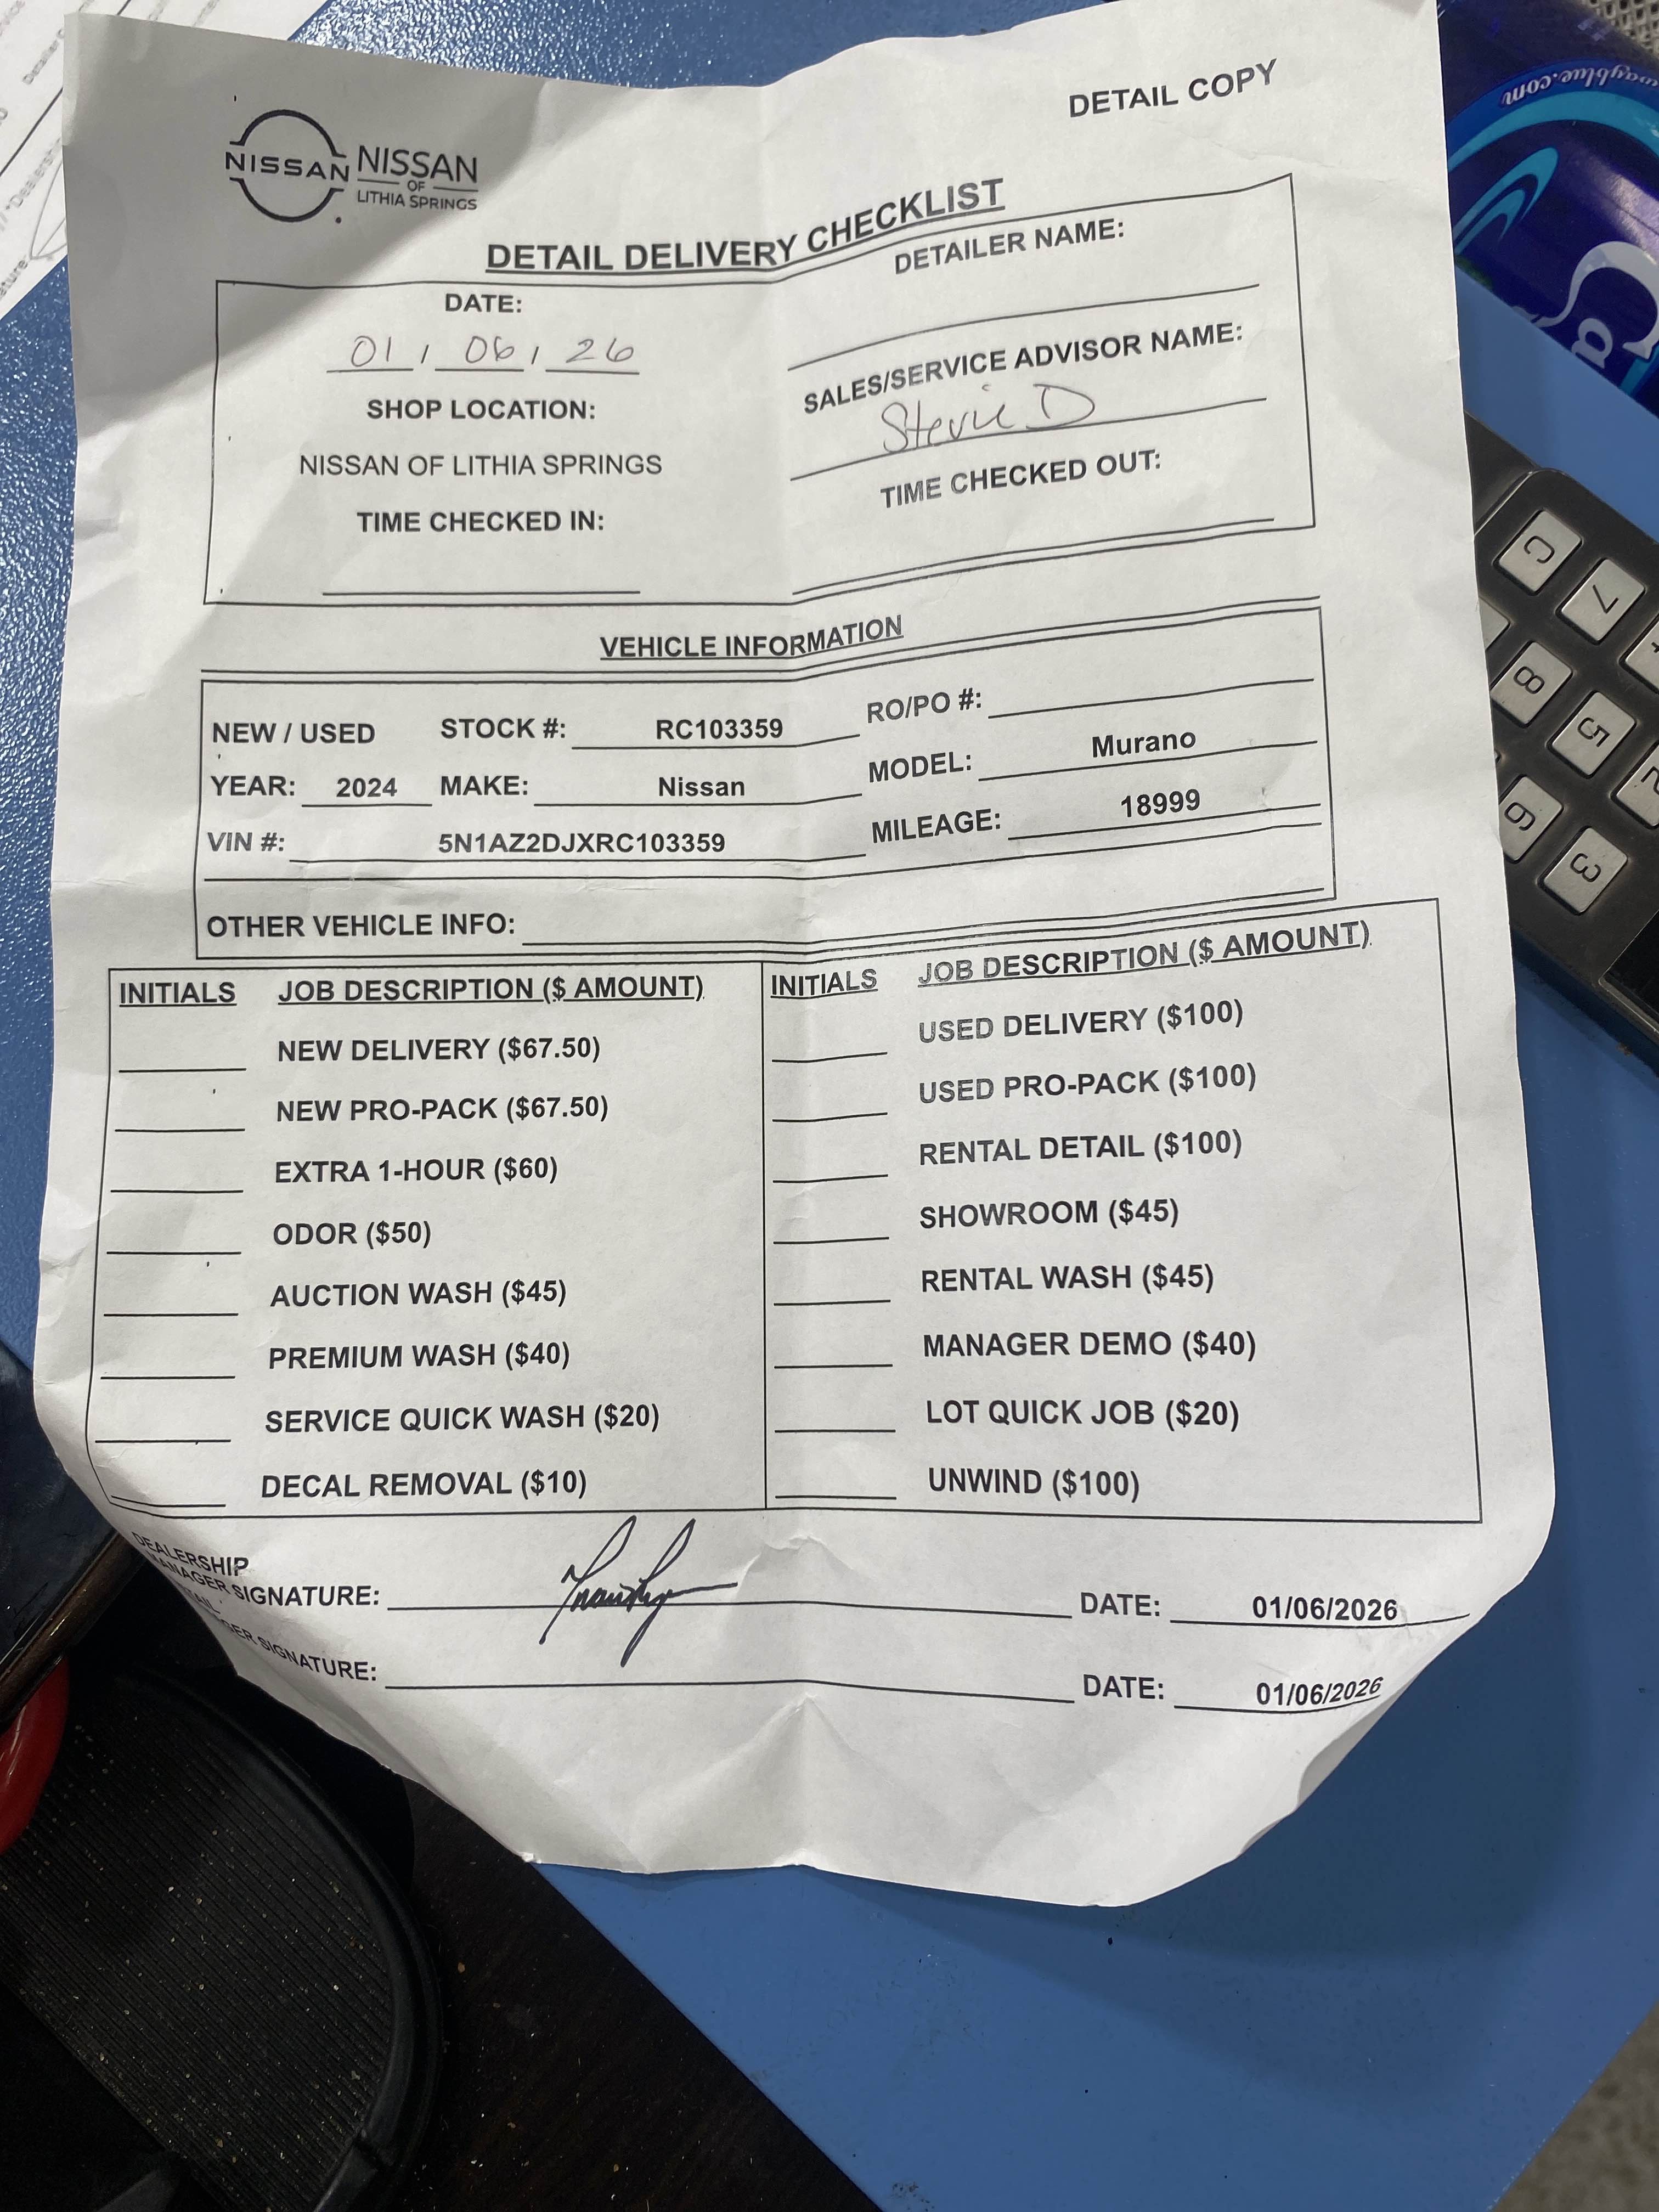 DETAIL COPY
NISSAN NISSAN
OF
LITHIA SPRINGS
DETAIL DELIVERY CHECKLIST
DATE:
01 / 06 / 26
SHOP LOCATION:
NISSAN OF LITHIA SPRINGS
TIME CHECKED IN:
DETAILER NAME:
SALES/SERVICE ADVISOR NAME:
Stevie D
TIME CHECKED OUT:
VEHICLE INFORMATION
NEW / USED STOCK #: RC103359 RO/PO #:
YEAR: 2024 MAKE: Nissan MODEL: Murano
VIN #: 5N1AZ2DJXRC103359 MILEAGE: 18999
OTHER VEHICLE INFO:
INITIALS JOB DESCRIPTION ($ AMOUNT)
NEW DELIVERY ($67.50)
NEW PRO-PACK ($67.50)
EXTRA 1-HOUR ($60)
ODOR ($50)
AUCTION WASH ($45)
PREMIUM WASH ($40)
SERVICE QUICK WASH ($20)
DECAL REMOVAL ($10)
INITIALS JOB DESCRIPTION ($ AMOUNT)
USED DELIVERY ($100)
USED PRO-PACK ($100)
RENTAL DETAIL ($100)
SHOWROOM ($45)
RENTAL WASH ($45)
MANAGER DEMO ($40)
LOT QUICK JOB ($20)
UNWIND ($100)
DEALERSHIP
MANAGER SIGNATURE: DATE: 01/06/2026
SIGNATURE: DATE: 01/06/2026
C 7
8 5 2
6 3